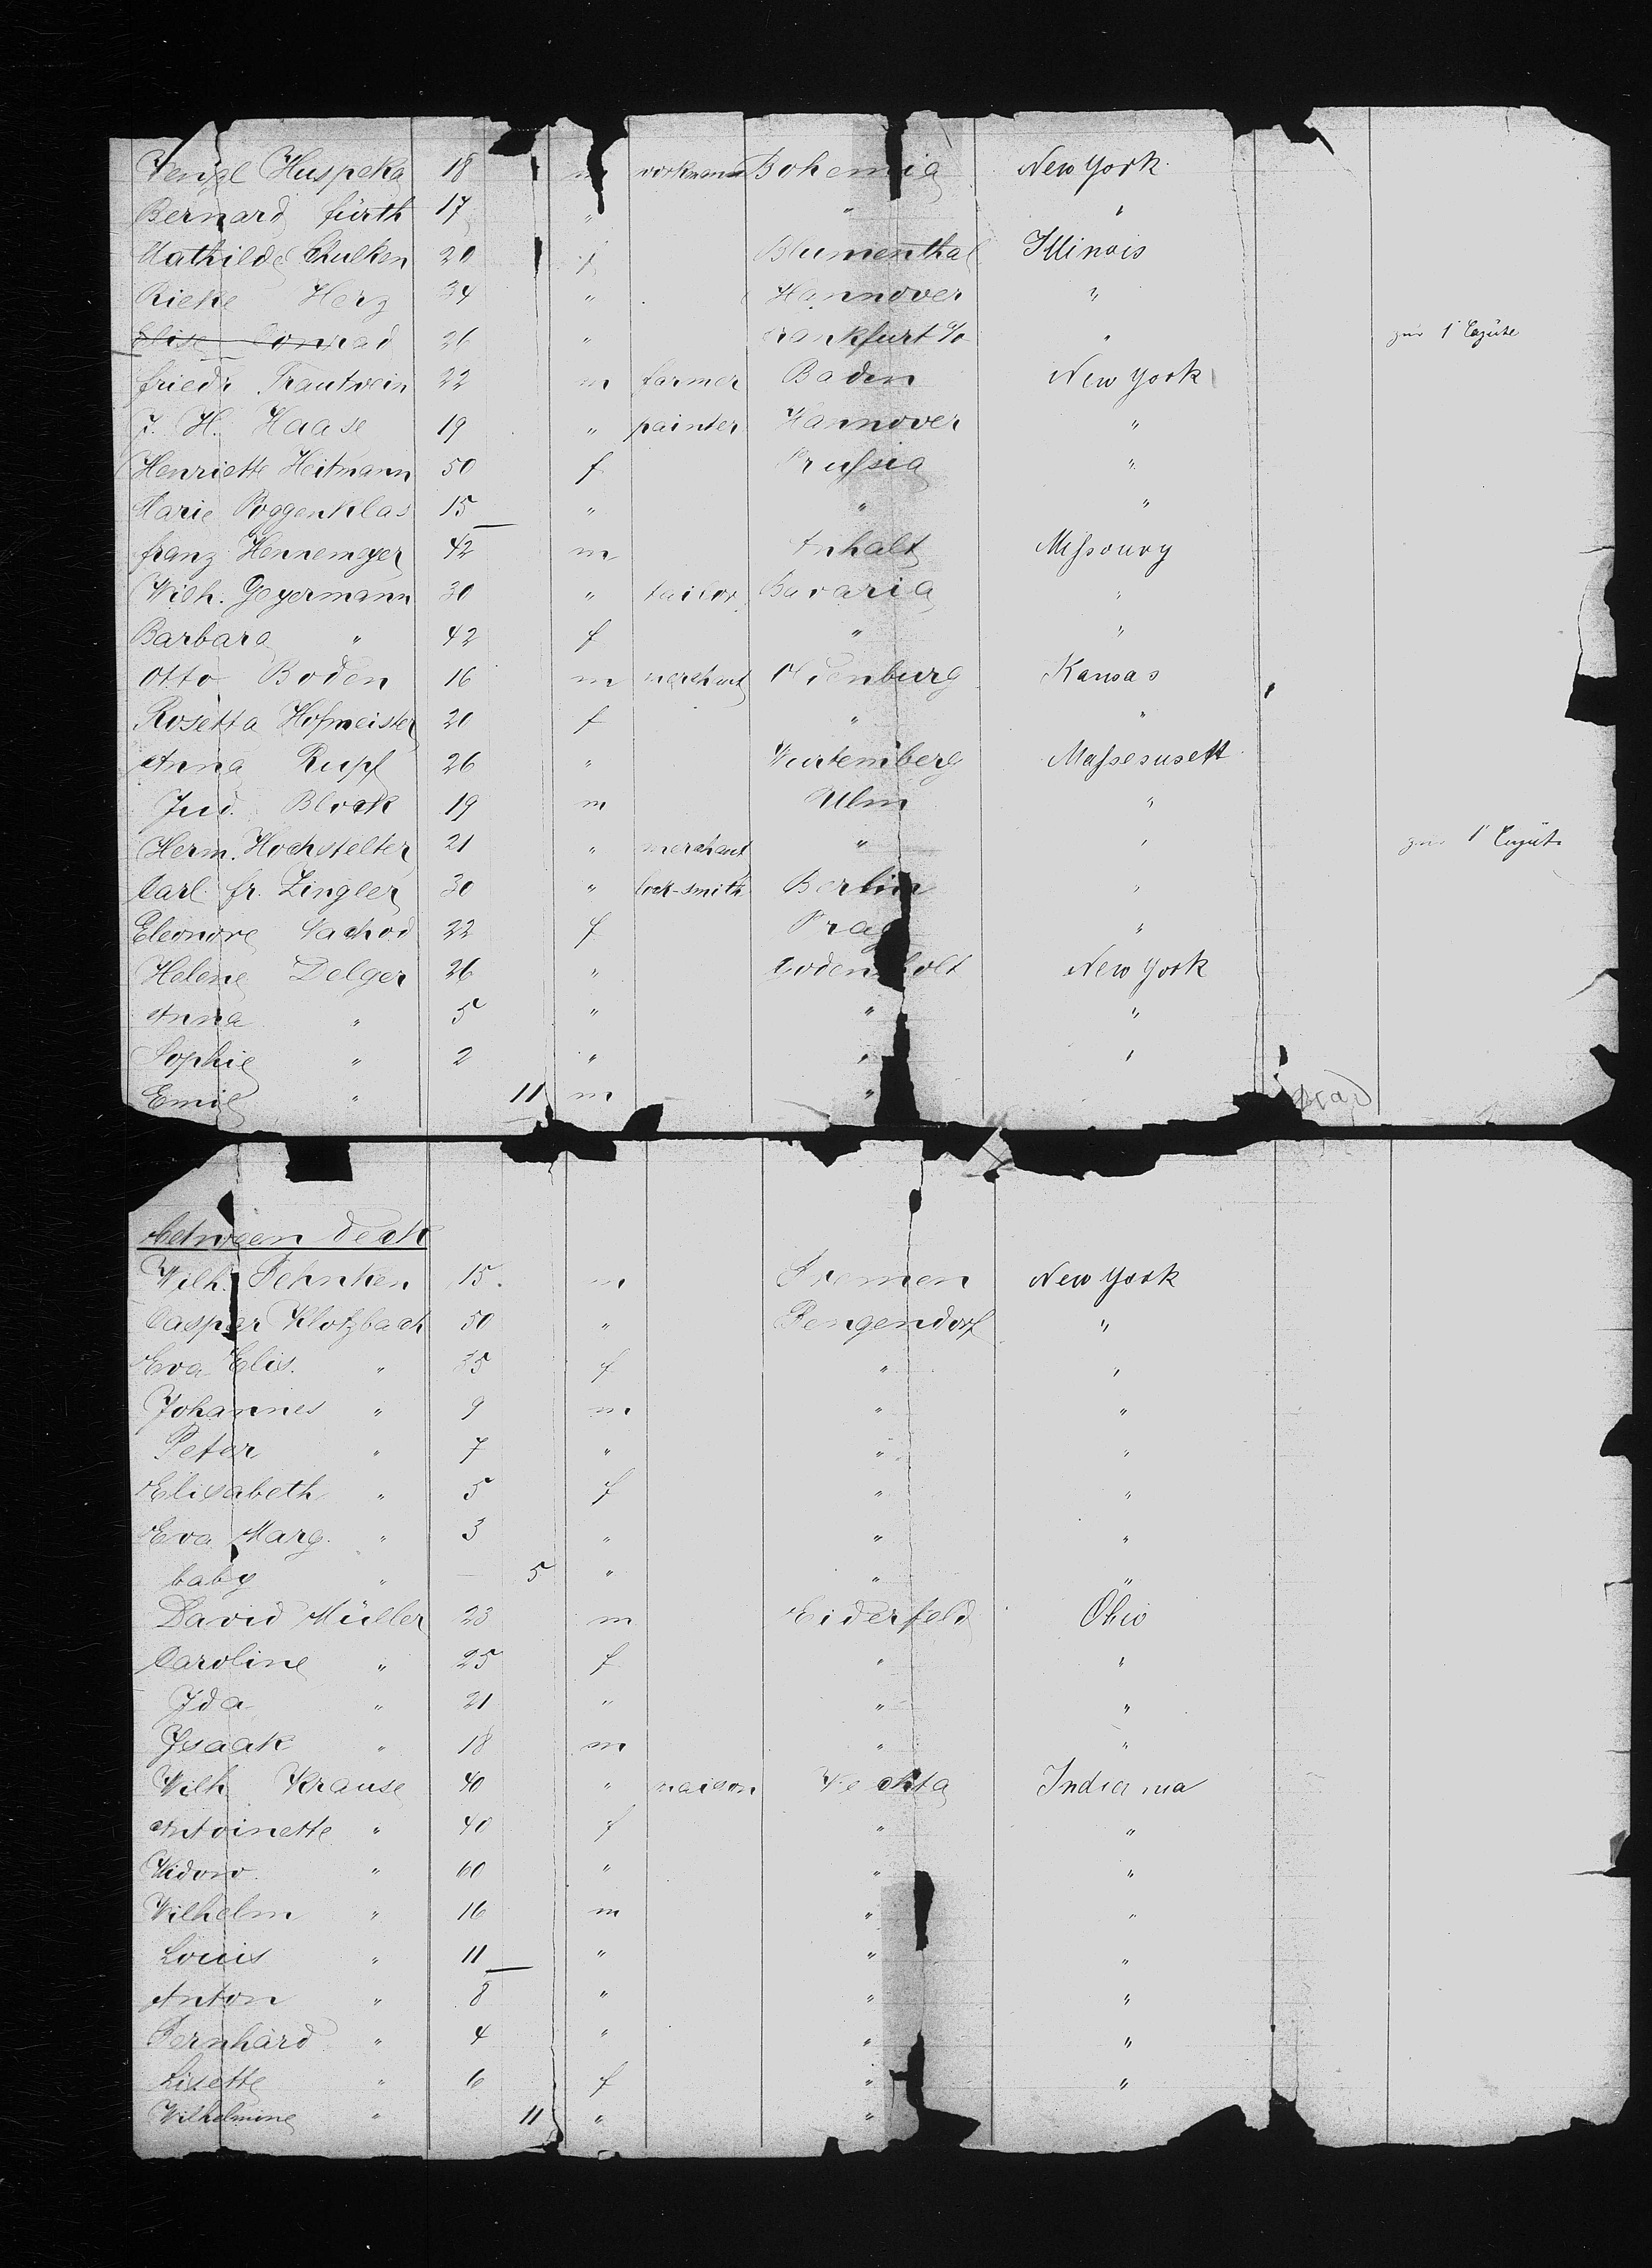 Huspeka 18 m workman Bohemia New York
Bernard fürth 17 " " "
Mathilde Chulken 20 f Blumenthal Illinois
Rieke Herz 34 " Hannover "
Elise Conrad 26 " rankfurt a/ " zur 1 Cajüte
friedr Trautwein 22 m farmer Baden New York
J. H. Haase 19 " painter Hannover "
Henriette Heitmann 50 f Prussia "
Marie Poggenklas 15 " " "
franz Hennemeyer 42 m Anhalt Missoury
Wilh. Geyermann 30 " tailor Bavaria "
Barbara " 42 f " "
Otto Boden 16 m merchant Nienburg Kansas
Rosetta Hofmeister 20 f " "
Anna Rupf 26 " Wurtemberg Massesusett
Jud. Block 19 m Ulm "
Herm. Hochstelter 21 " merchant " " zur 1 Cajüte
Carl fr. Zingler 30 " lock-smith Berlin "
Eleonore 22 f Prag "
Helene Delger 26 " New York
Anna " 5 " " "
Sophie " 2 " " "
Emil " 11 m " dead
between deck
Wilh. Fehnken 15. m Bremen New York
Caspar Klotzbach 50 " Rengendorf "
Eva Elis. " 35 f " "
Johannes " 9 m " "
Peter " 7 " " "
Elisabeth " 5 f " "
Eva Marg. " 3 " " "
baby " 5 " " "
David Müller 23 m Eiderfeld Ohio
Caroline " 25 f " "
Ida " 21 " " "
Isaak " 18 m " "
Wilh Krause 40 " maison Vechta Indiana
Antoinette " 40 f " "
Widow " 60 " " "
Wilhelm " 16 m " "
Louis " 11 " " "
Anton " 8 " " "
Bernhard " 4 " " "
Lisette " 6 f " "
Wilhelmine " 11 " "